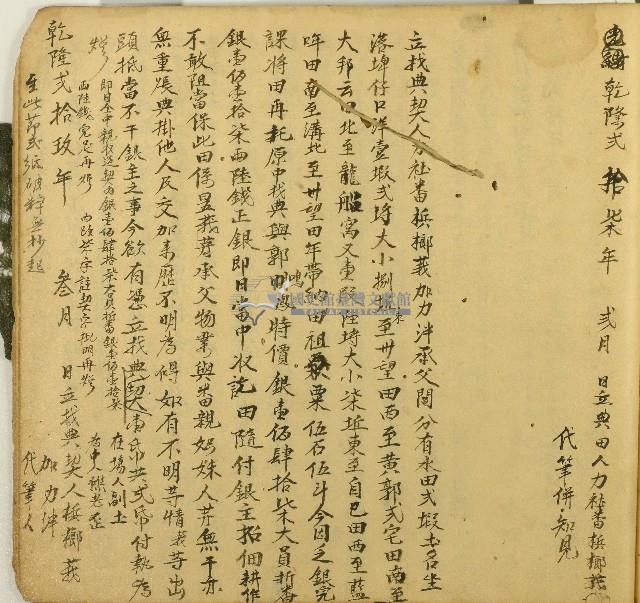 乾隆弍拾柒年 弍月 日立典田人力社番檳榔義
代筆併知見
立找典契人力社番檳榔義加力泮承父鬮分有水田弍
洛埤仔口洋壹 弍 大小捌坵東至廿望田西至黃郭弍宅田南至
大邦云田北至龍船窩又東 大小柒坵東至自己田西至藍
哖田南至溝北至廿望田年帶納田租粟伍石伍斗今因乏銀完
課將田再托原中找典與郭鳴 時價銀壹佰肆拾柒大員折番
銀壹佰壹拾柒両陸錢正銀即日當中收訖田隨付銀主招佃耕作
不敢阻當保此田係 義等承父物業與番親姒妹人等無干亦
無重張典掛他人民交加來歷不明為碍如有不明等情義等出
頭抵當不干銀主之事今欲有憑立找典契壹帋共弍帋付執為
炤
即日仝中親收過契內銀壹佰肆拾柒大員折番銀壹佰壹拾柒
両陸錢完足再炤 內改柒字註契大字批明再炤
在場人副土
為中人
乾隆弍拾玖年 叁月 日立找典契人檳榔義
加力泮
代筆人
至此 弍紙破碎無抄起
國史館臺灣文獻館